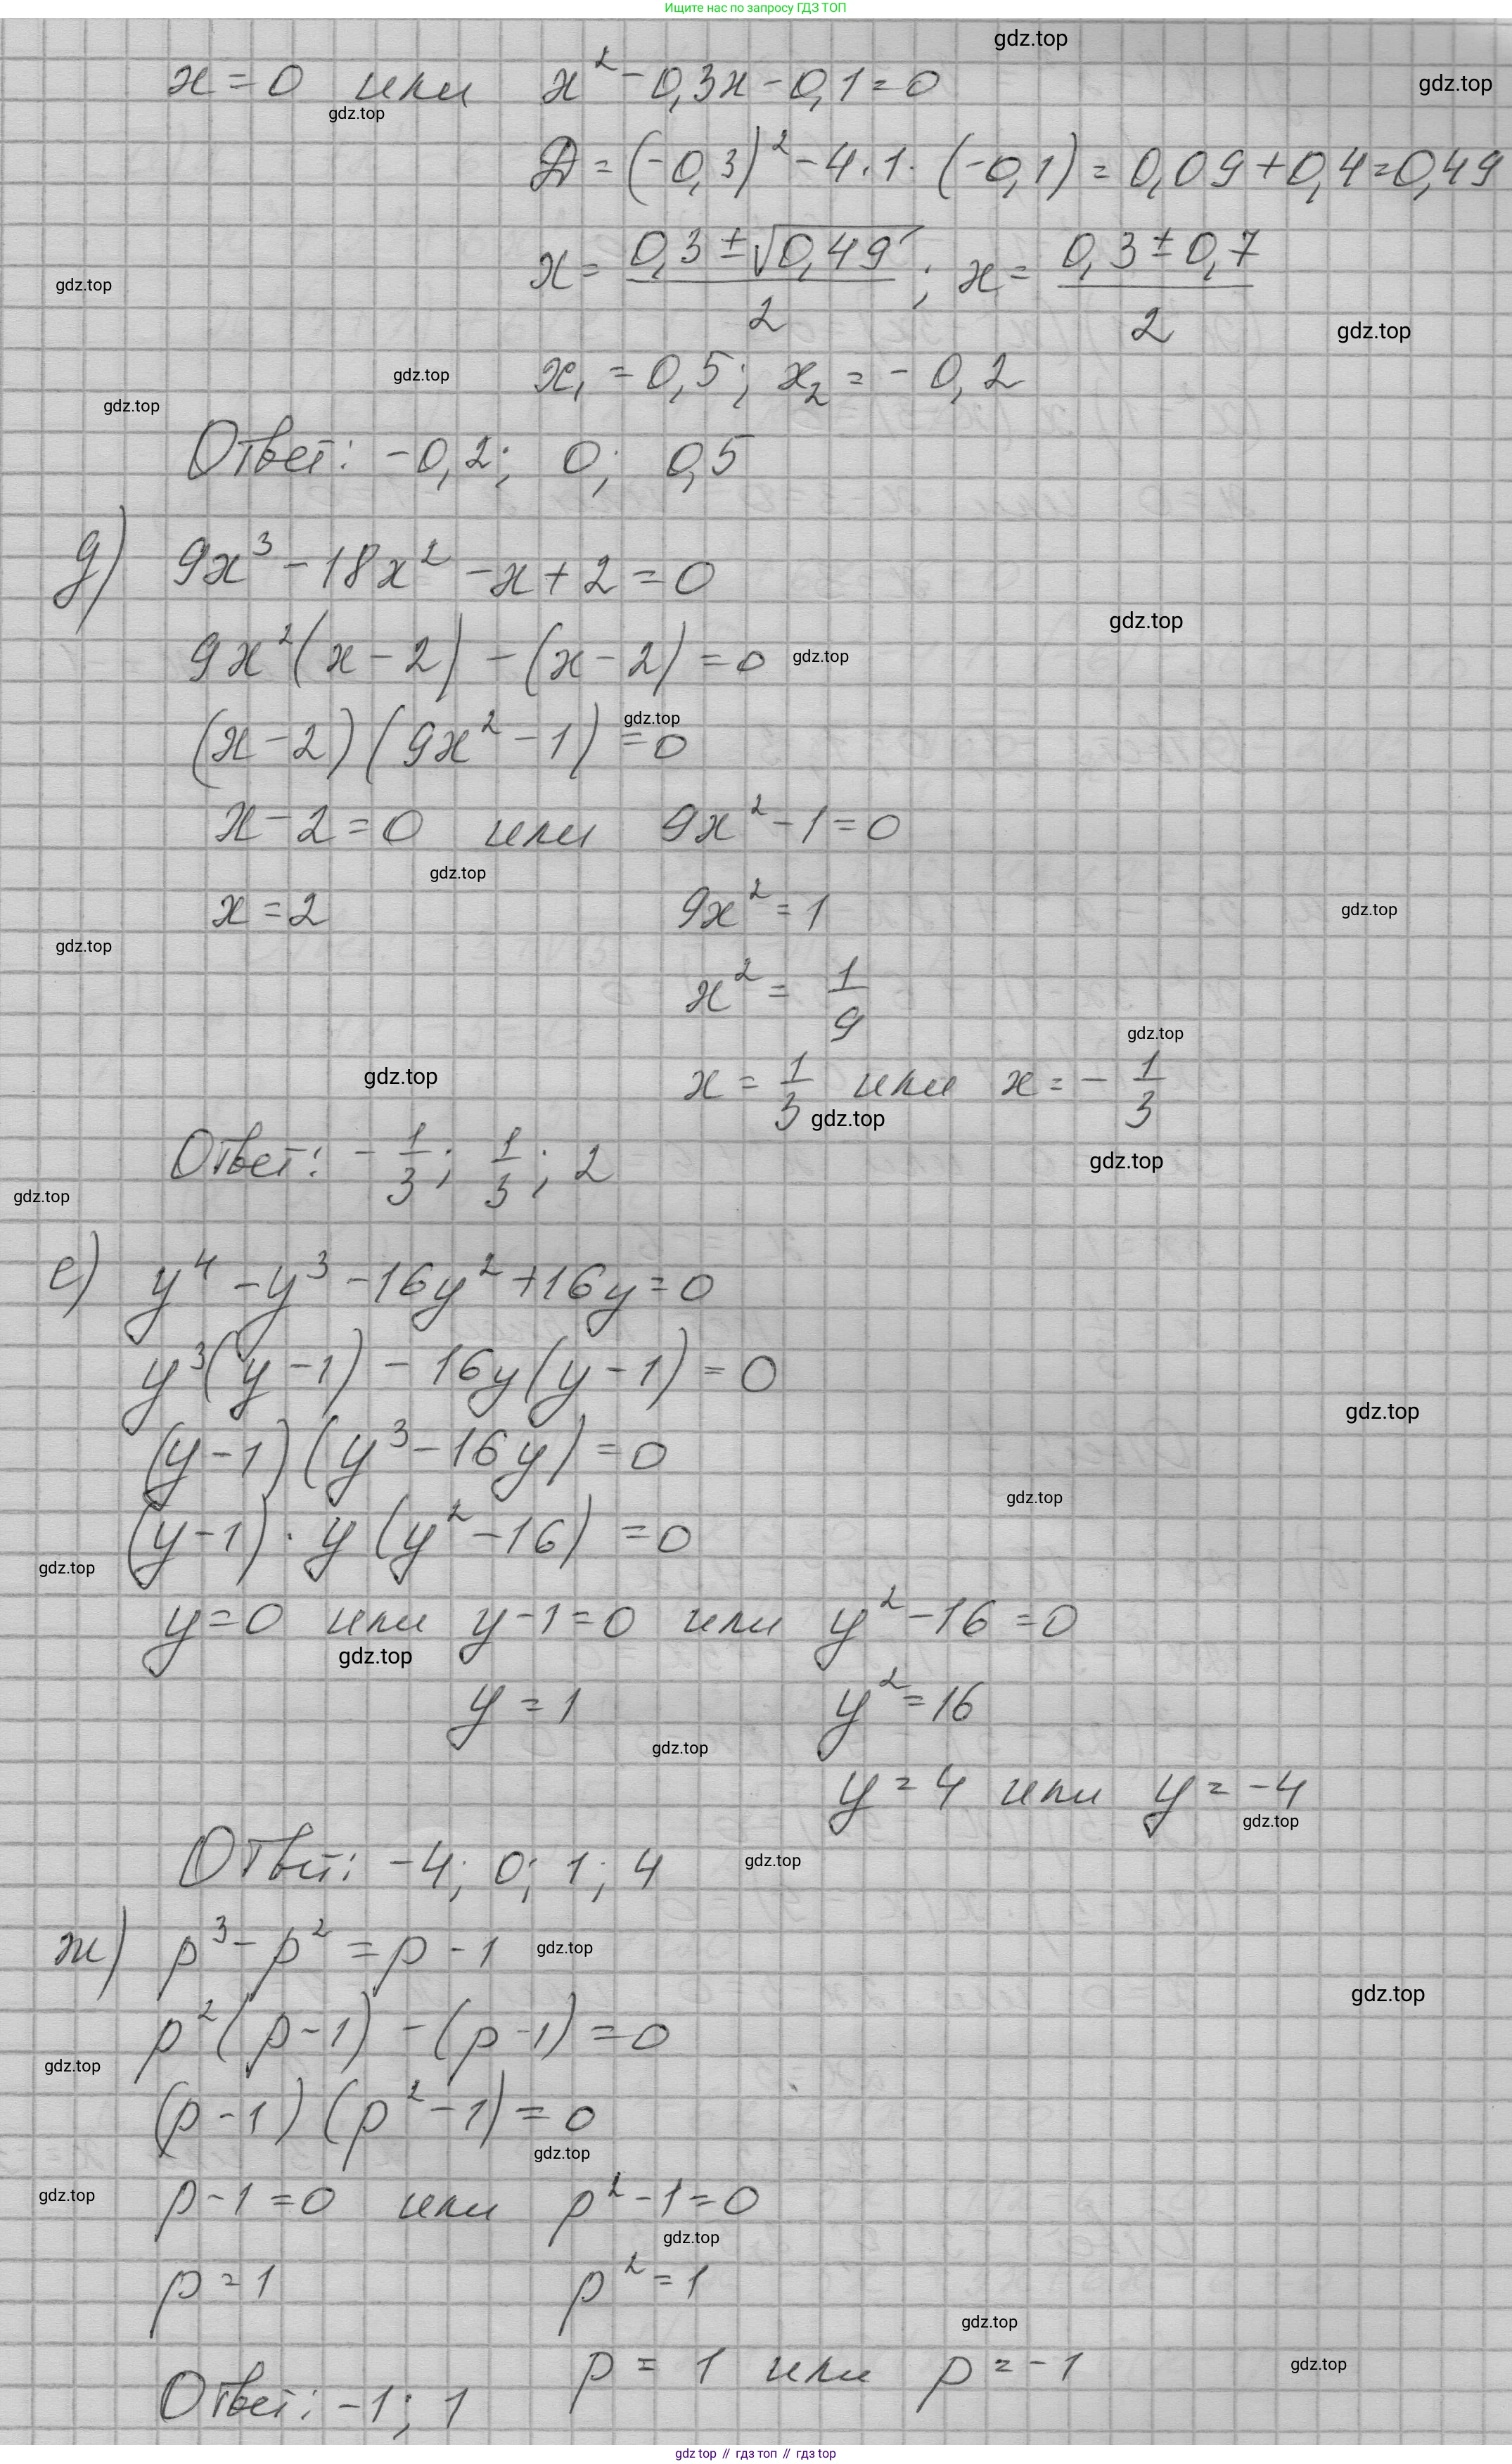 Ищите нас по запросу ГДЗ ТОП
gdz.top
x = 0 или x² - 0,3x - 0,1 = 0
gdz.top
gdz.top
Д = (-0,3)² - 4·1·(-0,1) = 0,09 + 0,4 = 0,49
x = (0,3 ± √0,49)/2 ; x = (0,3 ± 0,7)/2
gdz.top
gdz.top
x₁ = 0,5; x₂ = -0,2
gdz.top
gdz.top
Ответ: -0,2; 0; 0,5
д) 9x³ - 18x² - x + 2 = 0
gdz.top
9x²(x - 2) - (x - 2) = 0
gdz.top
gdz.top
(x - 2)(9x² - 1) = 0
x - 2 = 0 или 9x² - 1 = 0
gdz.top
x = 2 9x² = 1
gdz.top
gdz.top
x² = 1/9
gdz.top
gdz.top
x = 1/3 или x = - 1/3
gdz.top
gdz.top
Ответ: - 1/3; 1/3; 2
gdz.top
е) y⁴ - y³ - 16y² + 16y = 0
y³(y - 1) - 16y(y - 1) = 0
gdz.top
(y - 1)(y³ - 16y) = 0
gdz.top
(y - 1)·y(y² - 16) = 0
gdz.top
y = 0 или y - 1 = 0 или y² - 16 = 0
gdz.top
y = 1 y² = 16
gdz.top
y = 4 или y = -4
gdz.top
Ответ: -4; 0; 1; 4
gdz.top
ж) p³ - p² = p - 1
gdz.top
gdz.top
p²(p - 1) - (p - 1) = 0
gdz.top
(p - 1)(p² - 1) = 0
gdz.top
gdz.top
p - 1 = 0 или p² - 1 = 0
gdz.top
p = 1 p² = 1
gdz.top
p = 1 или p = -1
gdz.top
Ответ: -1; 1
gdz top // гдз топ // гдз top